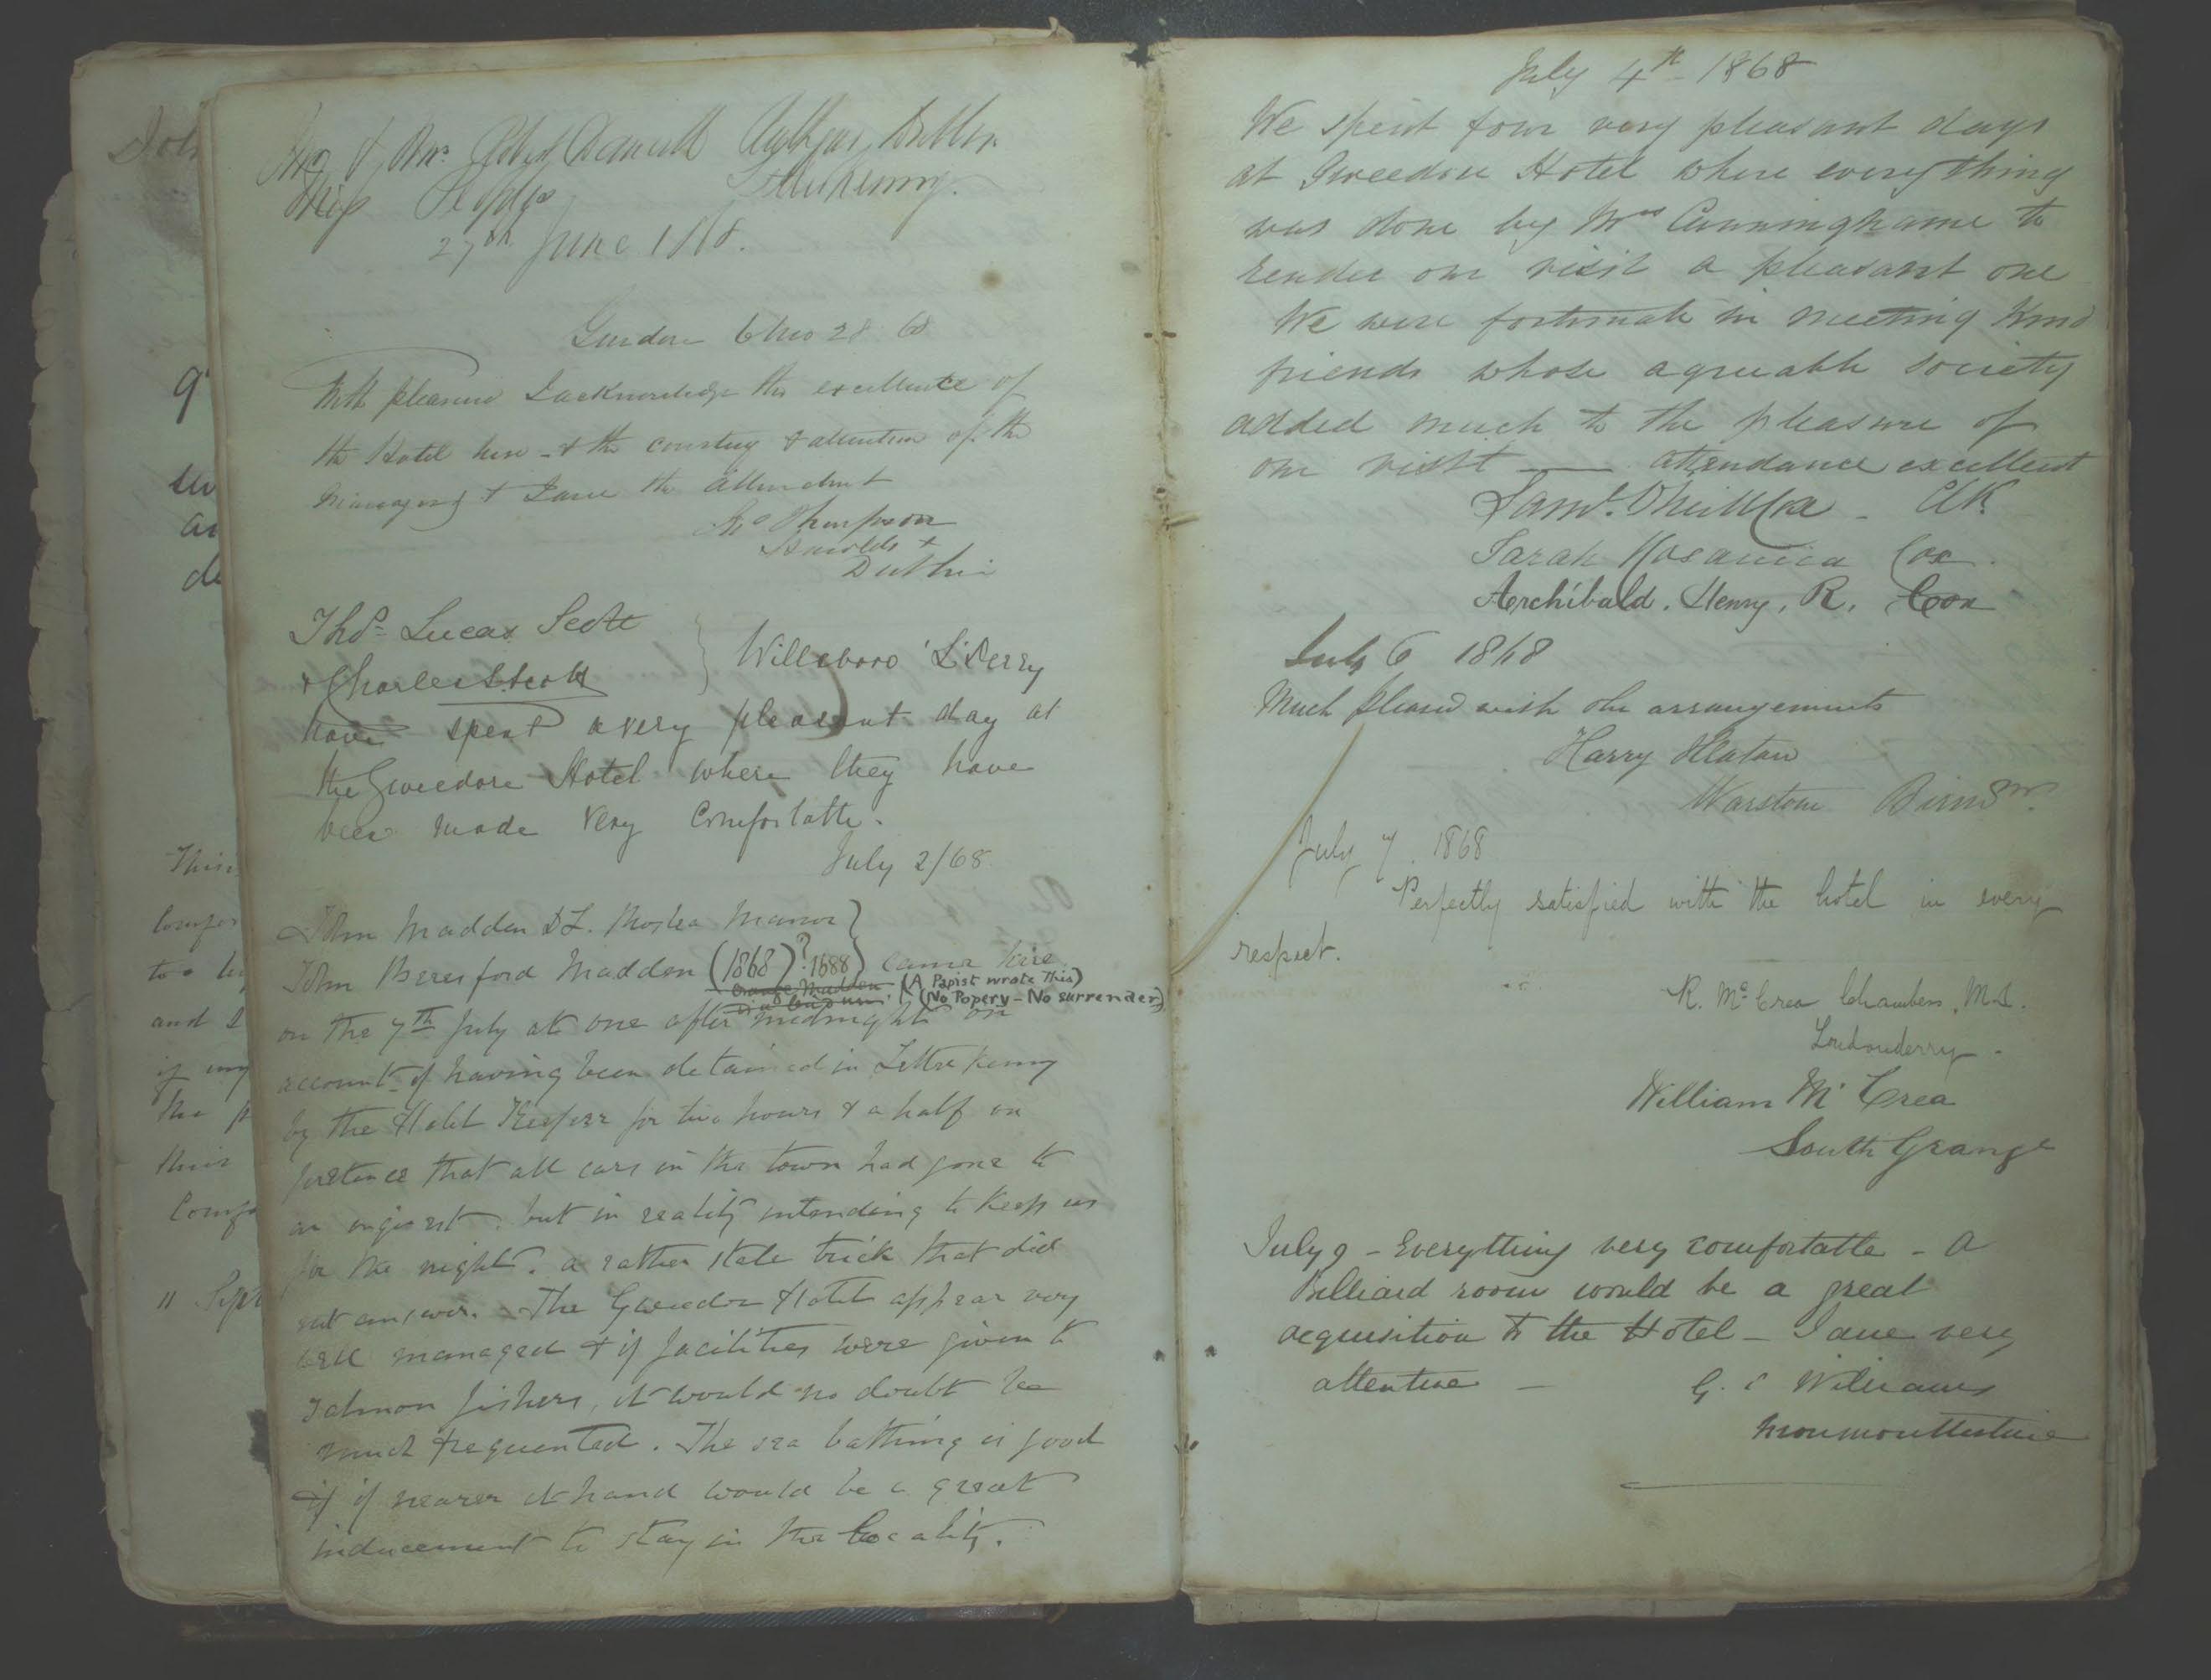 Mr & Mrs Robert
Miss
Letterkenny.
27th June 1868.
Gweedore 6 mo 28 68
With pleasure I acknowledge the excellence of
the Hotel here & the courtesy & attention of the
& Jane the attendant
Thompson
Dublin
Thos. Lucas Scott
& Charles S. Scott } Willsboro' L'Derry
have spent a very pleasant day at
the Gweedore Hotel where they have
been made very comfortable.
July 2/68
John Madden D.L. Roslea Manor }
John Beresford Madden (1868)? 1688) came here
Orange Madden (A Papist wrote this)
(No Popery - No surrender)
on the 7th July at one after midnight on
account of having been detained in Letterkenny
by the Hotel Keeper for two hours & a half on
pretence that all cars in the town had gone to
an inquest. but in reality intending to keep us
for the night. a rather stale trick that did
not answer. The Gweedore Hotel appear very
well managed & if facilities were given to
salmon fishers, it would no doubt be
much frequented. The sea bathing is good
if if nearer at hand would be a great
inducement to stay in the locality.
July 4th 1868
We spent four very pleasant days
at Gweedore Hotel where everything
was done by Mrs Cunninghame to
render our visit a pleasant one
We were fortunate in meeting kind
friends whose agreeable society
added much to the pleasure of
our visit — attendance excellent
Saml. Cox
Sarah Rosanna Cox.
Archibald. Henry. R. Cox
July 6 1868
Much pleased with the arrangements
Harry Heaton
Warstone Birmm.
July 7. 1868
Perfectly satisfied with the hotel in every
respect.
R. McCrea Chambers, M.D.
Londonderry -
William McCrea
South Grange
July 9 - Everything very comfortable - A
Billiard room would be a great
acquisition to the Hotel - Jane very
attentive - G. Williams
Monmouthshire